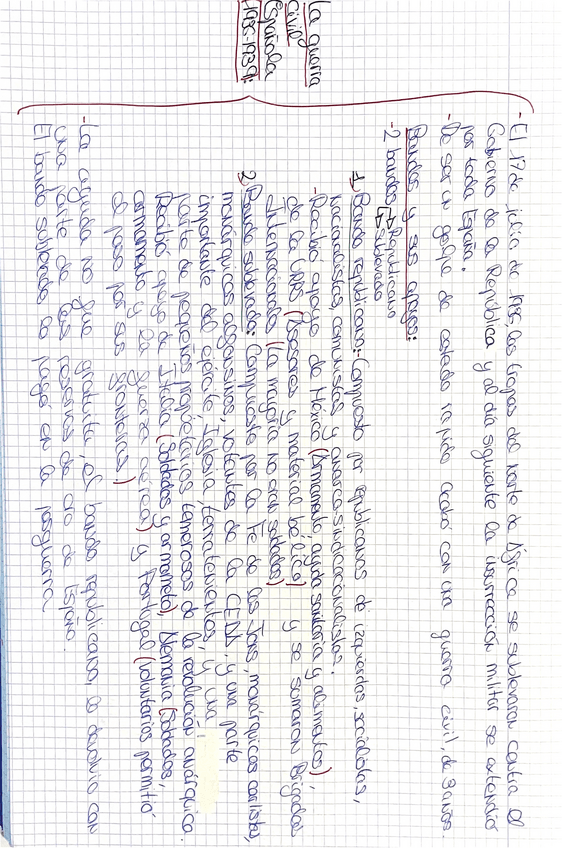 La guerra
Civil
Española
1936-1939:
- El 17 de julio de 1936, las tropas del norte de África se sublevaron contra el
Gobierno de la República y al día siguiente la insurrección militar se extendió
por toda España.
- De ser un golpe de estado rápido acabó con una guerra civil, de 3 años.
Bandos y sus apoyos:
- 2 bandos → Republicano
→ Sublevado
1. Bando republicano: Compuesto por republicanos de izquierdas, socialistas,
nacionalistas, comunistas y anarco-sindicacionalistas.
- Recibió apoyo de México (Armamento, ayuda sanitaria y alimentos)
de la URSS (Asesores y material bélico) y se sumaron Brigadas
Internacionales (la mayoría no eran soldados)
2. Bando sublevado: Compuesto por la Fe de las Jons, monárquicos carlistas,
monárquicos alfonsinos, votantes de la CEDA, y una parte
importante del ejército, Iglesia, terratenientes, y una
parte de pequeños propietarios temerosos de la revolución anárquica.
Recibió apoyo de Italia (Soldados y armamento), Alemania (Soldados,
armamento y la guerra aérea) y Portugal (voluntarios permitió
el paso por sus fronteras)
- La ayuda no fue gratuita, el bando republicano lo devolvió con
una parte de las reservas de oro de España.
El bando sublevado lo pagó en la posguerra.